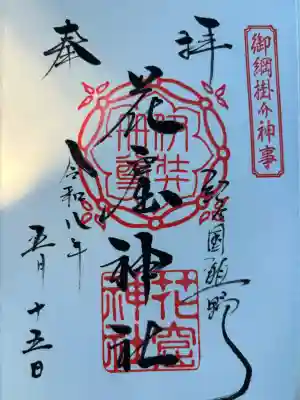 御綱掛け神事
奉拝
紀国熊野
花窟神社
令和八年
五月十五日
花窟
神社